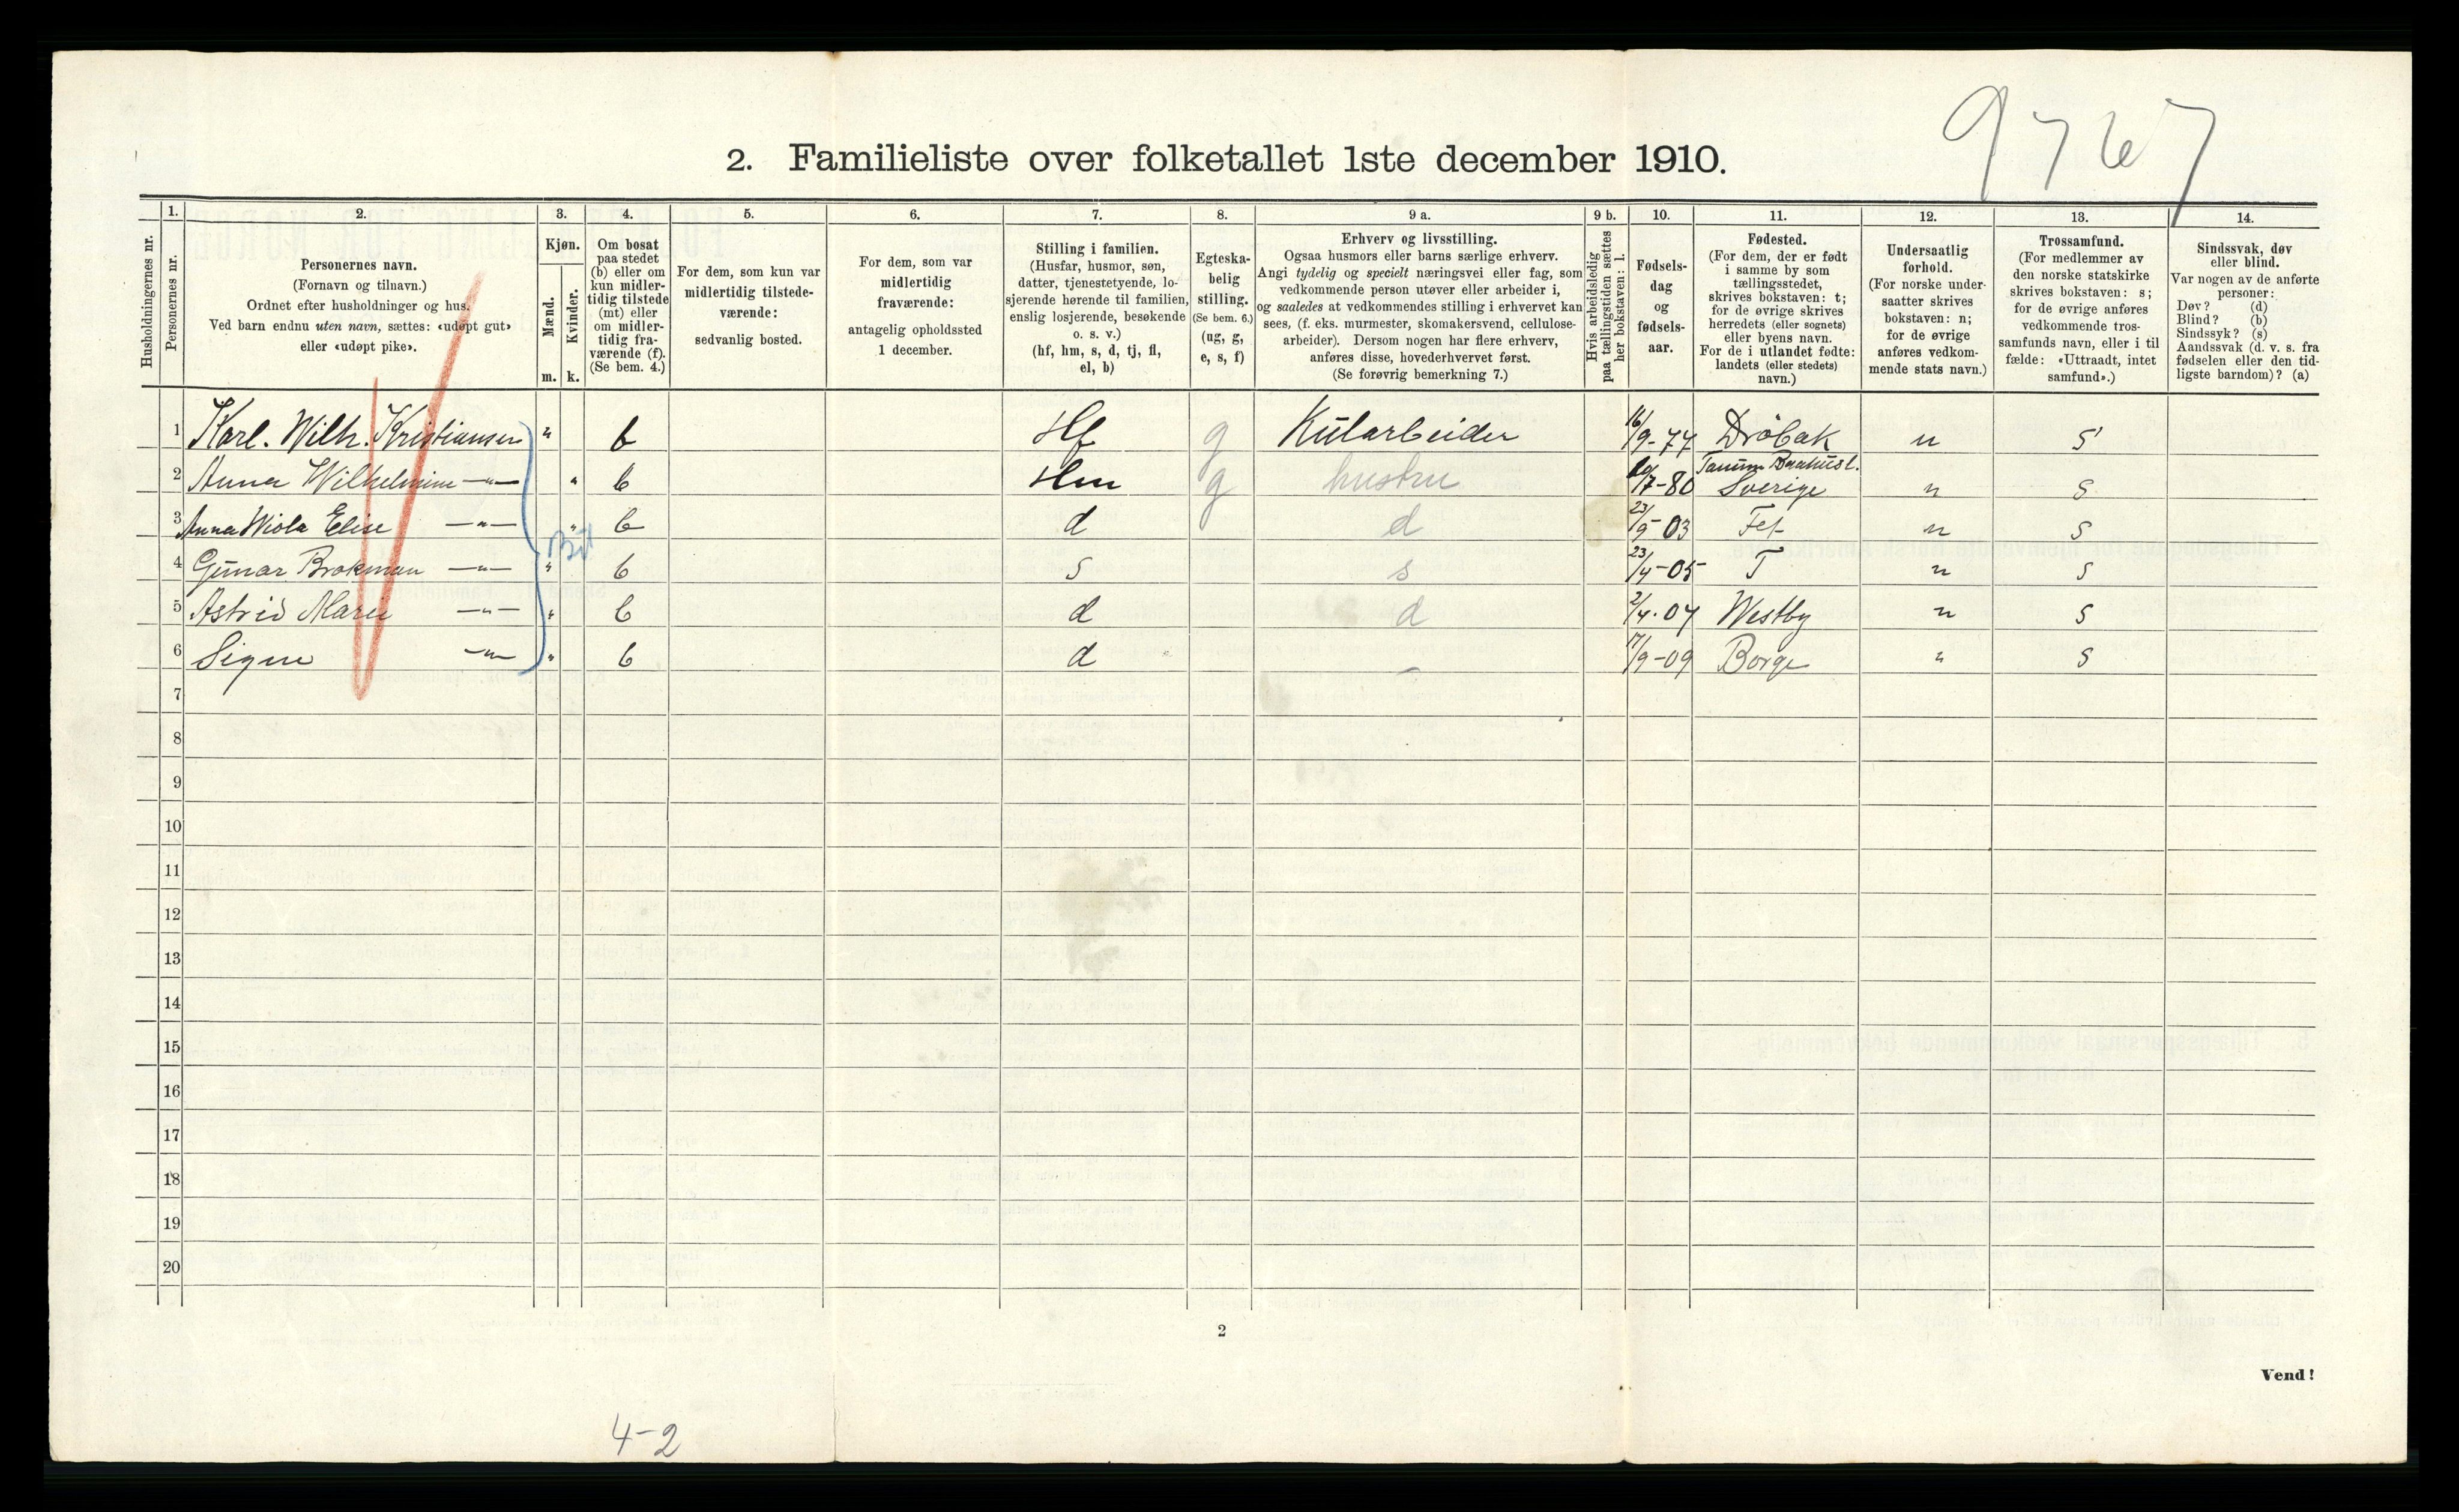 9767
2. Familieliste over folketallet 1ste december 1910.
Husholdningernes nr.
1.
Personernes nr.
2.
Personernes navn.
(Fornavn og tilnavn.)
Ordnet efter husholdninger og hus.
Ved barn endnu uten navn, sættes: «udøpt gut»
eller «udøpt pike».
3.
Kjøn.
Mænd.
Kvinder.
m. k.
4.
Om bosat
paa stedet
(b) eller om
kun midler-
tidig tilstede
(mt) eller
om midler-
tidig fra-
værende (f).
(Se bem. 4.)
5.
For dem, som kun var
midlertidig tilstede-
værende:
sedvanlig bosted.
6.
For dem, som var
midlertidig
fraværende:
antagelig opholdssted
1 december.
7.
Stilling i familien.
(Husfar, husmor, søn,
datter, tjenestetyende, lo-
sjerende hørende til familien,
enslig losjerende, besøkende
o. s. v.)
(hf, hm, s, d, tj, fl,
el, b)
8.
Egteska-
belig
stilling.
(Se bem. 6.)
(ug, g,
e, s, f)
9 a.
Erhverv og livsstilling.
Ogsaa husmors eller barns særlige erhverv.
Angi tydelig og specielt næringsvei eller fag, som
vedkommende person utøver eller arbeider i,
og saaledes at vedkommendes stilling i erhvervet kan
sees, (f. eks. murmester, skomakersvend, cellulose-
arbeider). Dersom nogen har flere erhverv,
anføres disse, hovederhvervet først.
(Se forøvrig bemerkning 7.)
9 b.
Hvis arbeidsledig
paa tællingstiden sættes
her bokstaven: l.
10.
Fødsels-
dag
og
fødsels-
aar.
11.
Fødested.
(For dem, der er født
i samme by som
tællingsstedet,
skrives bokstaven: t;
for de øvrige skrives
herredets (eller sognets)
eller byens navn.
For de i utlandet fødte:
landets (eller stedets)
navn.)
12.
Undersaatlig
forhold.
(For norske under-
saatter skrives
bokstaven: n;
for de øvrige
anføres vedkom-
mende stats navn.)
13.
Trossamfund.
(For medlemmer av
den norske statskirke
skrives bokstaven: s;
for de øvrige anføres
vedkommende tros-
samfunds navn, eller i til
fælde: «Uttraadt, intet
samfund».)
14.
Sindssvak, døv
eller blind.
Var nogen av de anførte
personer:
Døv? (d)
Blind? (b)
Sindssyk? (s)
Aandssvak (d. v. s. fra
fødselen eller den tid-
ligste barndom)? (a)
1 Karl. Wilh. Kristiansen " b Hf g Kularbeider 16/9-77 Drøbak n S
2 Anna Wilhelmine —"— " b Hm g hustru /7-80 Tanum Baahusl. Sverige n S
3 Anna Wiola Elise —"— " b d d 23/9-03 Fet n S
4 Gunar Brokman —"— " b S s 23/4-05 T n S
5 Astrid Marie —"— " b d d 2/4.07 Westby n S
6 Signe —"— " b d – 17/9-09 Borge " S
7
8
9
10
11
12
13
14
15
16
17
18
19
20
2
Vend!
4-2